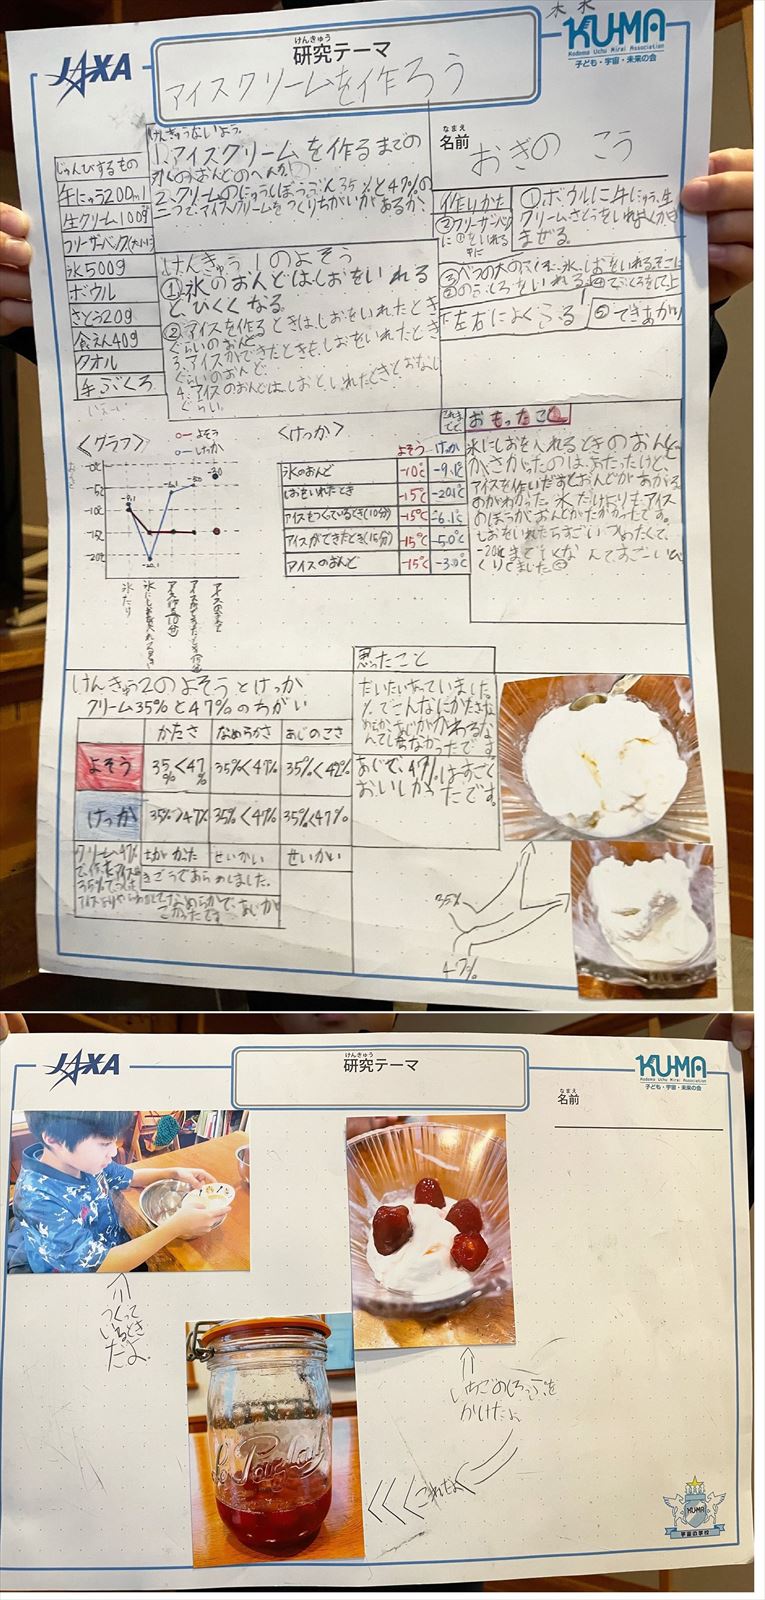 JAXA
けんきゅう
研究テーマ
アイスクリームを作ろう
KU-MA
Kodomo Uchu Mirai Association
子ども・宇宙・未来の会
なまえ
名前
おぎの こう
じゅんびするもの
牛にゅう200ml
生クリーム100g
フリーザーバック(大小)
氷500g
ボウル
さとう20g
食えん40g
タオル
手ぶくろ
けんきゅうないよう
1.アイスクリームを作るまでの
氷のおんどのへんか
2.クリームのにゅうしぼうぶん35%と47%の
二つで、アイスクリームをつくりちがいがあるか、
けんきゅう1のよそう
①氷のおんどはしおをいれる
と、ひくくなる。
②アイスを作るときは、しおをいれたとき
ぐらいのおんど
3.アイスができたときも、しおをいれたとき
ぐらいのおんど
4.アイスのおんどは、しおをいれたときとおなじ
ぐらい。
作りかた
①ボウルに牛にゅう、生
クリームさとうをいれよくかき
まぜる。
②フリーザーバック
に①をいれる
③べつの大のふくろに、氷、しおをいれる。そこに
②のふくろをいれる
④ふくろをして上
下左右によくふる
⑤できあがり
<グラフ>
よそう
けっか
-0℃
-5℃
-10℃
-15℃
-20℃
-9.1
-20.1
-6.1
-5.0
-3.0
<けっか>
よそう けっか
氷のおんど -10℃ -9.1℃
しおをいれたとき -15℃ -20.1℃
アイスをつくているとき(10分) -15℃ -6.1℃
アイスができたとき(15分) -15℃ -5.0℃
アイスのおんど -15℃ -3.0℃
おもったこと
氷にしおを入れるときのおんど
が、さがったのは、あたったけど、
アイスを作いだすとおんどがあがる
のがわかった。氷だけよりもアイス
のほうがおんどがたかかったです。
しおをいれたらすごいつめたくて、
-20℃までいくなんて、すごーいびっ
くりでました
けんきゅう2のよそうとけっか
クリーム35%と47%のちがい
かたさ なめらかさ あじのこさ
よそう 35%<47% 35%<47% 35%<47%
けっか 35%>47% 35%<47% 35%<47%
ちがかった せいかい せいかい
きごうであらわしました。
クリーム47%
なめらかで、あじが
こかったです
思ったこと
だいたいあっていました。
%でこんなにかたさな
めらか、あじがかわるな
んてしらなかったです
あじで、47%はすごく
おいしかったです。
35%
47%
JAXA
けんきゅう
研究テーマ
KU-MA
Kodomo Uchu Mirai Association
子ども・宇宙・未来の会
なまえ
名前
つくって
いるとき
だよ。
いちごのしろっぷを
かけたよ
これだよ
Le Parfait
KU-MA
宇宙の学校